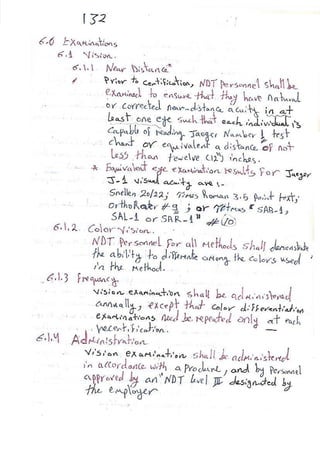 132
6.0 Examinations
6.1 Vision.
6.1.1 Near Distance"
* Prior to certification, NDT Personnel shall be
examined to ensure that they have natural
or corrected near-distance acuity in at
least one eye such that each individual is
capable of reading Jaeger Number 1 test
chart or equivalent a distance of not
less than tewelve (12") inches.
* Equivalent eye examination results for Jaeger
J-1 visual acuity are :-
Snellen 20/22; Times Roman 3.5 Point text;
OrthoRater #9 ; or "SAR-1,
SAL-1 or SBR-1" #10
6.1.2. Color Vision.
NDT Personnel for all Methods shall demonstrate
the ability to among the colors used
in the Method.
6.1.3 Frequency
Vision examination shall be administered
annually, except that color differentiation
examinations need be repeated only at each
recertification.
6.1.4 Administration
Vision examination shall be administered
in accordance with a Procedure, and by Personnel
approved by an "NDT level III designated by
the employer